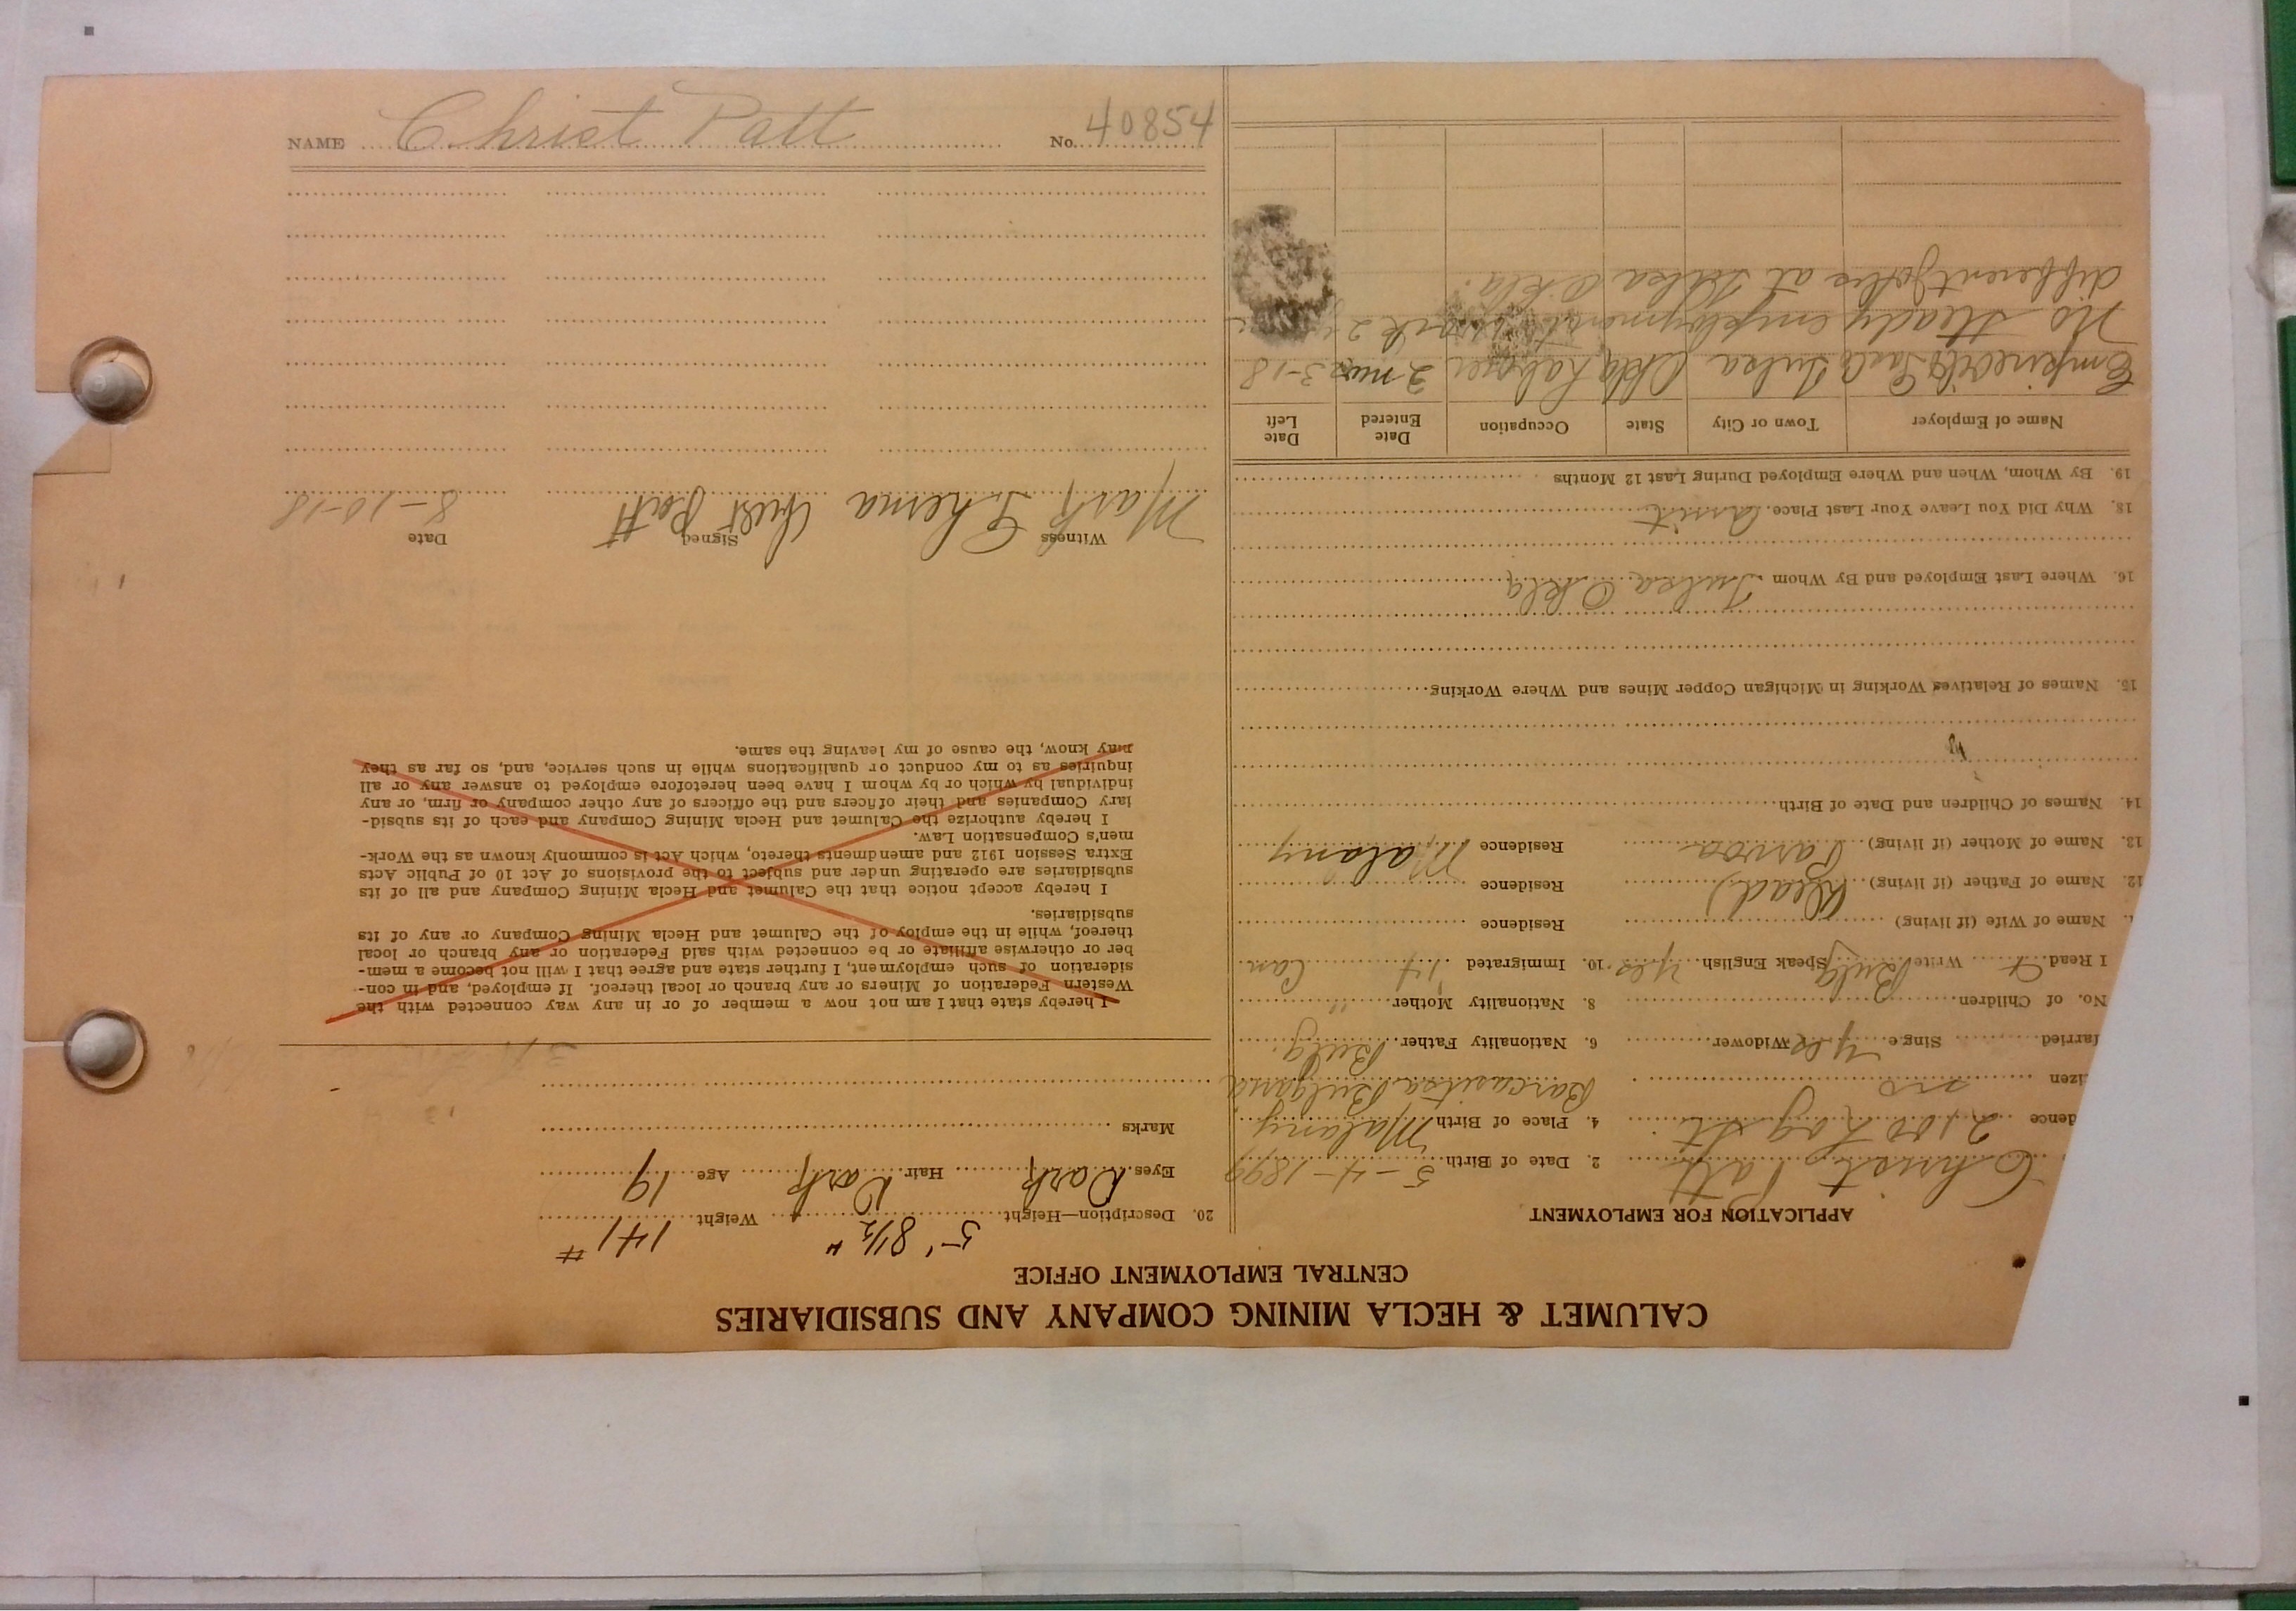 CALUMET & HECLA MINING COMPANY AND SUBSIDIARIES
CENTRAL EMPLOYMENT OFFICE
APPLICATION FOR EMPLOYMENT
Christ Patt 2. Date of Birth 5-4-1899
dence 2100 Log St. 4. Place of Birth Malany
izen no Barcasitsa Bulgaria
larried Single yes Widower 6. Nationality Father Bulg.
No. of Children 8. Nationality Mother "
I Read Write Bulg Speak English yes 10. Immigrated '14 Can
Name of Wife (if living) Residence
12. Name of Father (if living) (Dead) Residence
13. Name of Mother (if living) Residence Malany
14. Names of Children and Date of Birth
15. Names of Relatives Working in Michigan Copper Mines and Where Working
16. Where Last Employed and By Whom Tulsa Okla
18. Why Did You Leave Your Last Place.
19. By Whom, When and Where Employed During Last 12 Months
Name of Employer Town or City State Occupation Date Entered Date Left
Tulsa Okla Laborer 2 mos 3-18
No steady employment
different jobs at Tulsa Okla.
20. Description—Height 5' 8½" Weight 141 #
Eyes Dark Hair Dark Age 19
Marks
I hereby state that I am not now a member of or in any way connected with the
Western Federation of Miners or any branch or local thereof. If employed, and in con-
sideration of such employment, I further state and agree that I will not become a mem-
ber or otherwise affiliate or be connected with said Federation or any branch or local
thereof, while in the employ of the Calumet and Hecla Mining Company or any of its
subsidiaries.
I hereby accept notice that the Calumet and Hecla Mining Company and all of its
subsidiaries are operating under and subject to the provisions of Act 10 of Public Acts
Extra Session 1912 and amendments thereto, which Act is commonly known as the Work-
men's Compensation Law.
I hereby authorize the Calumet and Hecla Mining Company and each of its subsid-
iary Companies and their officers and the officers of any other company or firm, or any
individual by which or by whom I have been heretofore employed to answer any or all
inquiries as to my conduct or qualifications while in such service, and, so far as they
may know, the cause of my leaving the same.
Witness Signed Date
Mark Christ Patt 8-10-18
NAME Christ Patt No. 40854